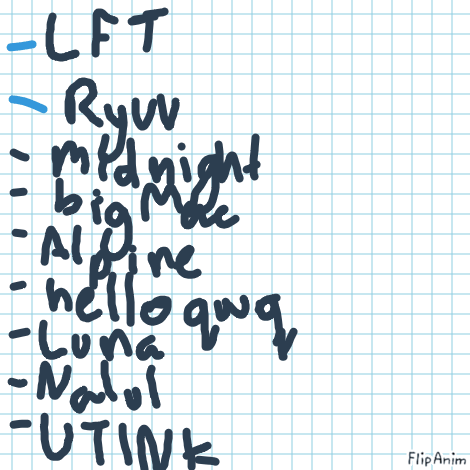 - LFT
- Ryuu
- midnight
- big Mac
- Alpine
- hello qwq
- Luna
- Nalul
- UTINK
FlipAnim